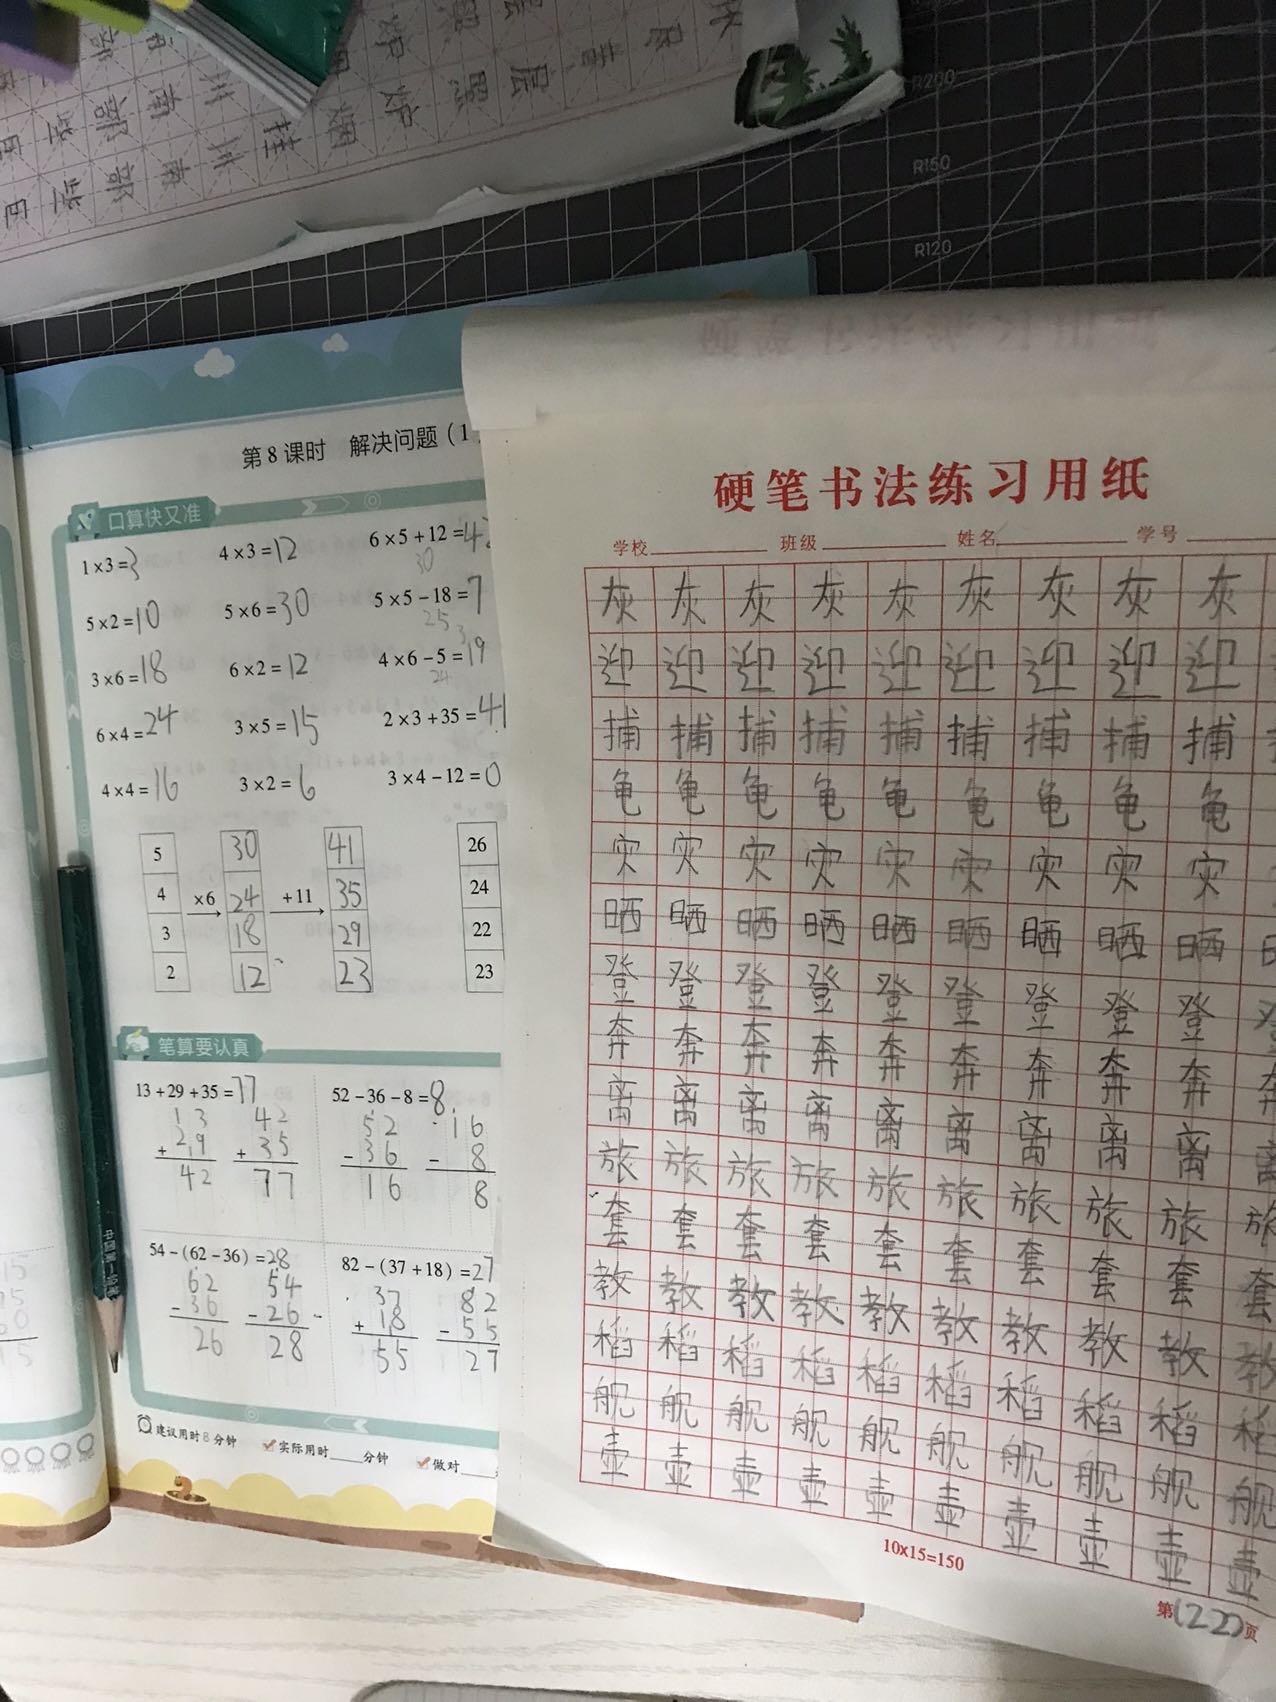 R200
R150
R120
第8课时 解决问题（1
口算快又准
1×3=3 4×3=12 6×5+12=42
30
5×2=10 5×6=30 5×5-18=7
25
3×6=18 6×2=12 4×6-5=19
24
6×4=24 3×5=15 2×3+35=41
4×4=16 3×2=6 3×4-12=0
5 30 41 26
4 ×6 24 +11 35 24
3 18 29 22
2 12 23 23
笔算要认真
13+29+35=77 52-36-8=8
13 42 52 16
+29 +35 -36 -8
42 77 16 8
54-(62-36)=28 82-(37+18)=27
62 54 37 82
-36 -26 +18 -55
26 28 55 27
建议用时8分钟 实际用时____分钟 做对____
硬笔书法练习用纸
学校 班级 姓名 学号
灰灰灰灰灰灰灰灰灰
迎迎迎迎迎迎迎迎迎
捕捕捕捕捕捕捕捕捕
龟龟龟龟龟龟龟龟龟
灾灾灾灾灾灾灾灾灾
晒晒晒晒晒晒晒晒晒
登登登登登登登登登
奔奔奔奔奔奔奔奔奔奔
离离离离离离离离离
旅旅旅旅旅旅旅旅旅旅
套套套套套套套套套套
教教教教教教教教教教
稻稻稻稻稻稻稻稻稻
舰舰舰舰舰舰舰舰舰舰
壶壶壶壶壶壶壶壶壶壶
10×15=150
第(22)页